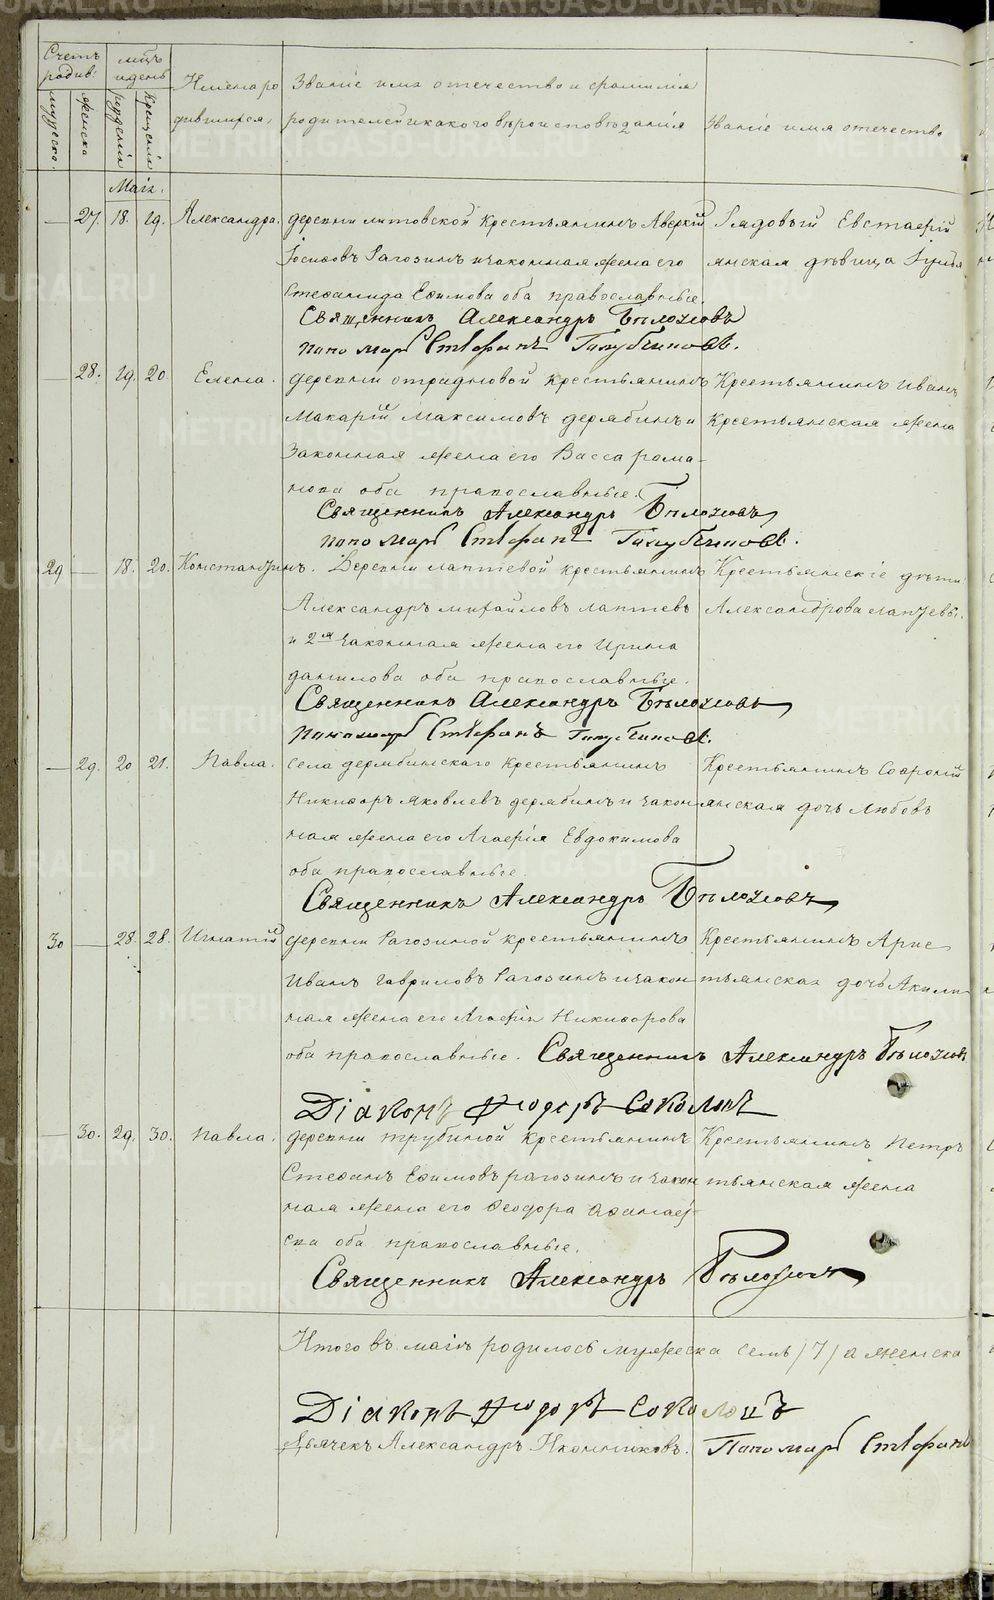 Счетъ родив:
мѣсц. и день
Имена ро
дившихся,
Званіе имя отечество и фамилія
родителей и какого вѣроисповѣданія
Званіе имя отечество
мужеска.
женска
рожденія
крещенія
Маія.
— 27. 18. 19. Александра. деревни литовской крестьянинъ Аверкій Рядовый Евстафій
Іосифовъ Рагозинъ и законная жена его янская дѣвица
Степанида Ефимова оба православные.
Священникъ Александръ Бѣлозеровъ
пономарь Стефанъ
— 28. 19. 20 Елена. деревни отрадновой крестьянинъ Крестьянинъ Иванъ
Макарій Максимовъ дерябинъ и крестьянская жена
Законная жена его Васса рома-
нова оба православные.
Священникъ Александръ
пономарь Стефанъ
29 — 18. 20. Константинъ. Деревни лаптевой крестьянинъ Крестьянскіе дѣти
Александръ михайловъ лаптевъ Александрова лаптевы.
и 2я законная жена его Ирина
данилова оба православные.
Священникъ Александръ
Пономарь Стефанъ
— 29. 20 21. Павла. села дерябинскаго крестьянинъ Крестьянинъ Софроній
Никифоръ яковлевъ дерябинъ и закон янская дочь Любовь
ная жена его Агафія Евдокимова
оба православные.
Священникъ Александръ
30 — 28. 28. Игнатій деревни Рагозиной крестьянинъ Крестьянинъ Арис
Иванъ гавриловъ Рагозинъ и закон тьянская дочь Акили
ная жена его Агафія Никифорова
оба православные. Священникъ Александръ
Діаконъ Ѳеодоръ Соколовъ
— 30. 29. 30. павла. деревни трубиной крестьянинъ Крестьянинъ Петръ
Стефанъ Ефимовъ рагозинъ и закон тьянская жена
ная жена его Ѳеодора
ева оба православные.
Священникъ Александръ
Итого въ маіѣ родилось мужеска семь /7/ а женска
Діаконъ Ѳеодоръ Соколовъ
Дьячекъ Александръ Иконниковъ. Пономарь Стефанъ
METRIKI.GASO-URAL.RU